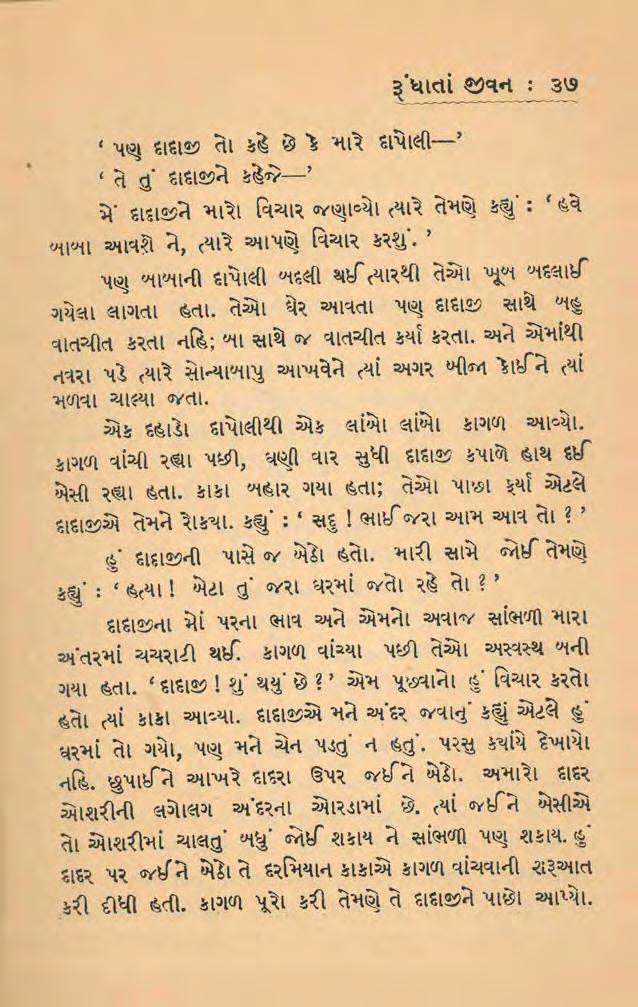 રૂંધાતાં જીવન : ૩૭
‘ પણ દાદાજી તો કહે છે કે મારે દાપોલી—’
‘ તે તું દાદાજીને કહેજે—’
મેં દાદાજીને મારો વિચાર જણાવ્યો ત્યારે તેમણે કહ્યું : ‘ હવે
બાબા આવશે ને, ત્યારે આપણે વિચાર કરશું. ’
પણ બાબાની દાપોલી બદલી થઈ ત્યારથી તેઓ ખૂબ બદલાઈ
ગયેલા લાગતા હતા. તેઓ ઘેર આવતા પણ દાદાજી સાથે બહુ
વાતચીત કરતા નહિ; બા સાથે જ વાતચીત કર્યા કરતા. અને એમાંથી
નવરા પડે ત્યારે સોન્યાબાપુ આખવેને ત્યાં અગર બીજા કોઈને ત્યાં
મળવા ચાલ્યા જતા.
એક દહાડો દાપોલીથી એક લાંબો લાંબો કાગળ આવ્યો.
કાગળ વાંચી રહ્યા પછી, ઘણી વાર સુધી દાદાજી કપાળે હાથ દઈ
બેસી રહ્યા હતા. કાકા બહાર ગયા હતા; તેઓ પાછા ફર્યા એટલે
દાદાજીએ તેમને રોક્યા. કહ્યું : ‘ સદુ ! ભાઈ જરા આમ આવ તો ? ’
હું દાદાજીની પાસે જ બેઠો હતો. મારી સામે જોઈ તેમણે
કહ્યું : ‘ હત્યા ! બેટા તું જરા ઘરમાં જતો રહે તો ? ’
દાદાજીના મોં પરના ભાવ અને એમનો અવાજ સાંભળી મારા
અંતરમાં ચચરાટી થઈ. કાગળ વાંચ્યા પછી તેઓ અસ્વસ્થ બની
ગયા હતા. ‘ દાદાજી ! શું થયું છે ? ’ એમ પૂછવાનો હું વિચાર કરતો
હતો ત્યાં કાકા આવ્યા. દાદાજીએ મને અંદર જવાનું કહ્યું એટલે હું
ઘરમાં તો ગયો, પણ મને ચેન પડતું ન હતું. પરસુ ક્યાંયે દેખાયો
નહિ. છુપાઈને આખરે દાદરા ઉપર જઈને બેઠો. અમારો દાદર
ઓશરીની લગોલગ અંદરના ઓરડામાં છે. ત્યાં જઈને બેસીએ
તો ઓશરીમાં ચાલતું બધું જોઈ શકાય ને સાંભળી પણ શકાય. હું
દાદર પર જઈને બેઠો તે દરમિયાન કાકાએ કાગળ વાંચવાની શરૂઆત
કરી દીધી હતી. કાગળ પૂરો કરી તેમણે તે દાદાજીને પાછો આપ્યો.